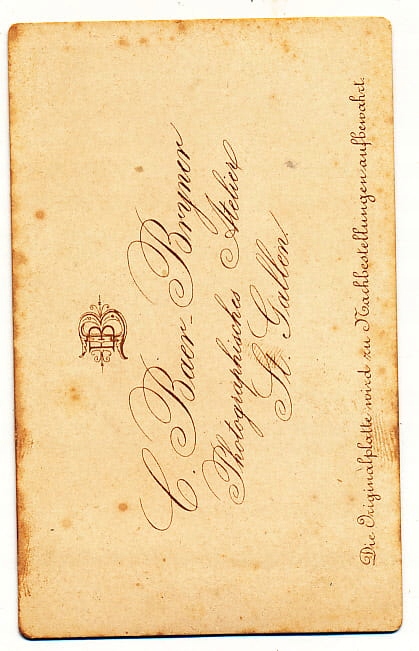 C. Baer-Bryner
Photographisches Atelier
St. Gallen.
Die Originalplatte wird zu Nachbestellungen aufbewahrt.